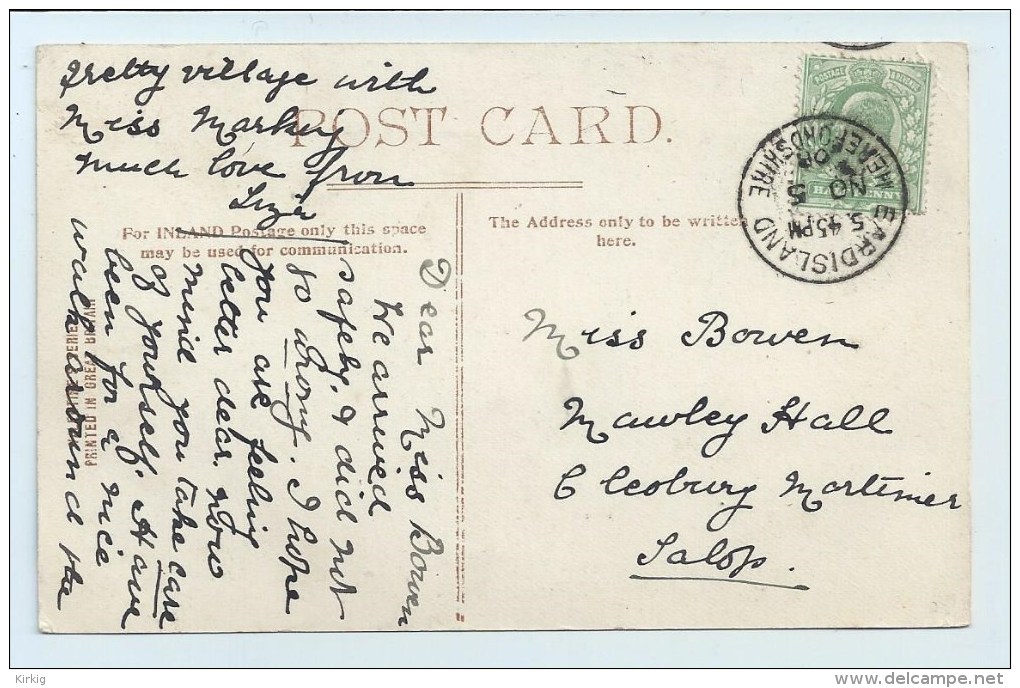 POST CARD.
For INLAND Postage only this space
may be used for communication.
The Address only to be written
here.
Dear Miss Bowen
We arrived
safely, & did not
go wrong. I hope
you are feeling
better dear. Now
mind you take care
of yourself. Have
been for a nice
walk around the
pretty village with
Miss Markey
Much love from
Miss Bowen
Mawley Hall
Cleobury Mortimer
Salop.
POSTAGE
EARDISLAND
HEREFORDSHIRE
5.45PM
NO 5
PRINTED IN GREAT BRITAIN
Kirkig